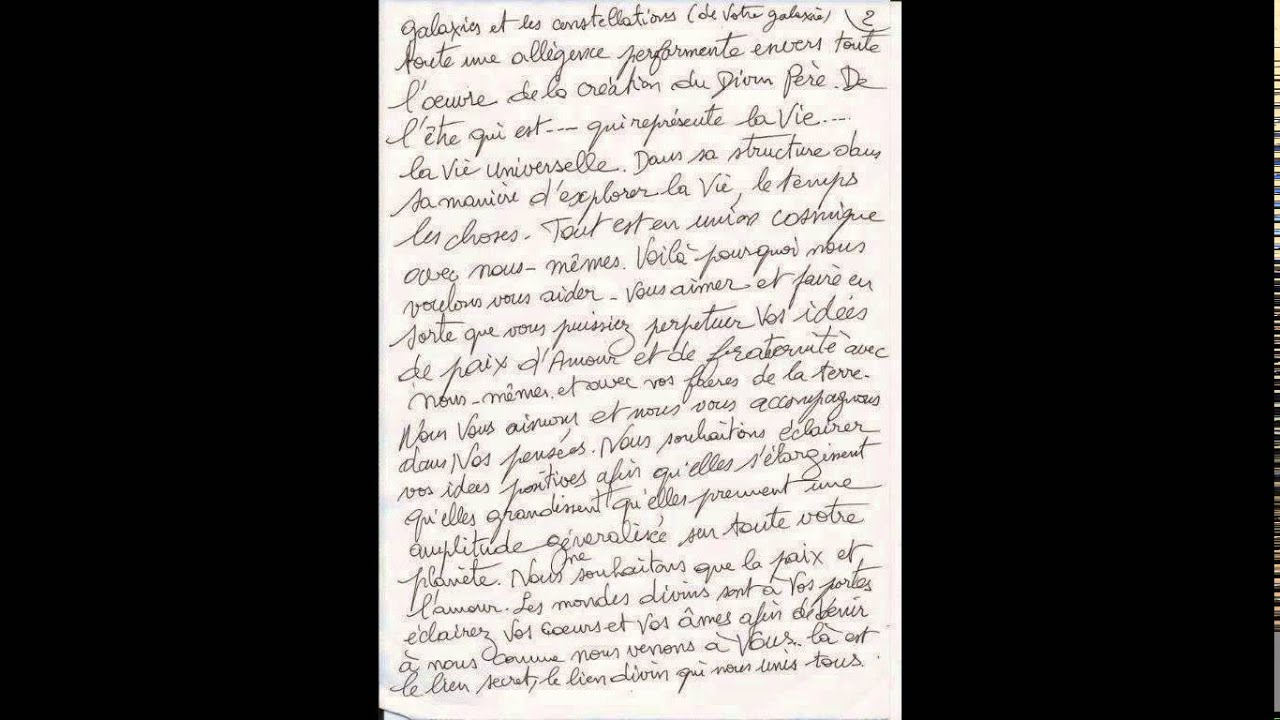 galaxies et les constellations (de votre galaxie) 2
toute une allégence performente envers toute
l'œuvre de la création du Divin Père. De
l'être qui est---- qui représente la Vie....
la Vie Universelle. Dans sa structure dans
sa manière d'explorer la Vie, le temps
les choses. Tout est en union cosmique
avec nous-mêmes. Voilà pourquoi nous
voulons vous aider - Vous aimer et faire en
sorte que vous puissiez perpetuer Vos idées
de paix d'Amour et de fraternité avec
nous-mêmes. et avec vos frères de la terre-
Nous Vous aimons et nous vous accompagnons
dans Nos pensées. Nous souhaitons éclairer
vos idées positives afin qu'elles s'élargissent
qu'elles grandissent qu'elles prennent une
amplitude généralisée sur toute votre
planète. Nous ne souhaitons que la paix et
l'amour. Les mondes divins sont à Vos portes
éclairez Vos cœurs et Vos âmes afin de venir
à nous comme nous venons à Vous.. là est
le lien secret, le lien divin qui nous unis tous.